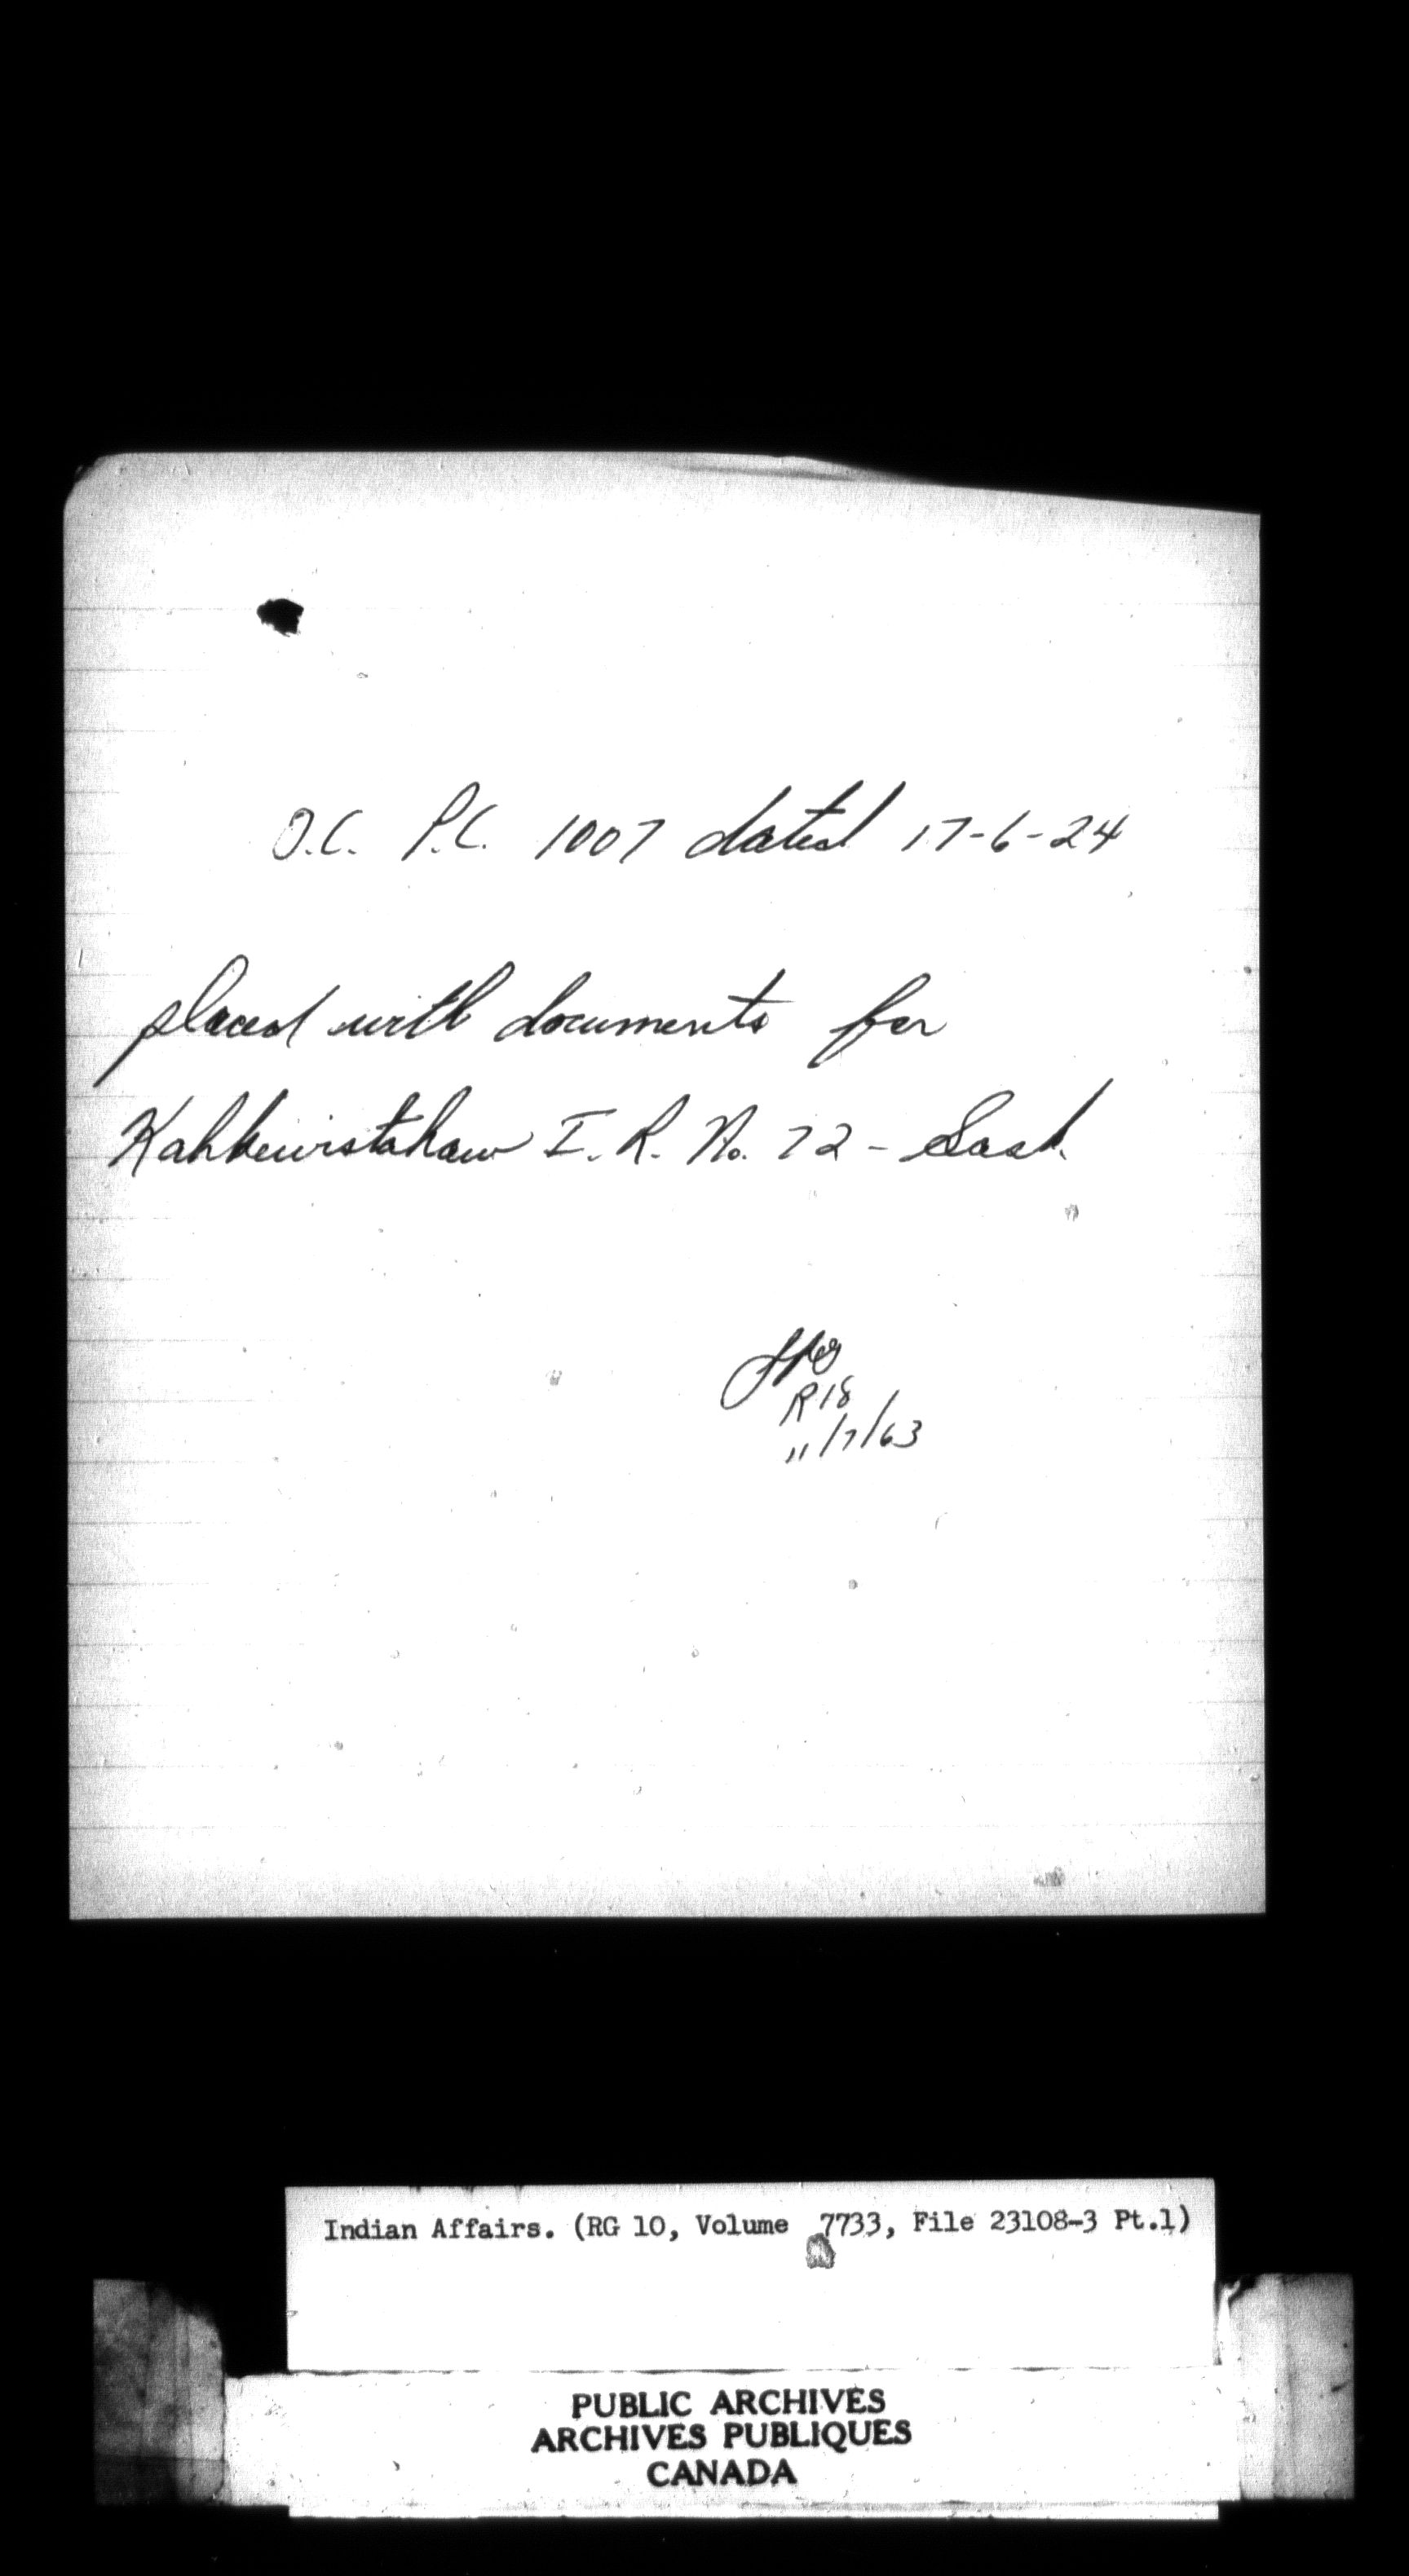 O.C. P.C. 1007 dated 17-6-24
placed with documents for
Kahkewistahaw I.R. No. 72 - Sask.
R18
11/7/63
Indian Affairs. (RG 10, Volume 7733, File 23108-3 Pt.1)
PUBLIC ARCHIVES
ARCHIVES PUBLIQUES
CANADA